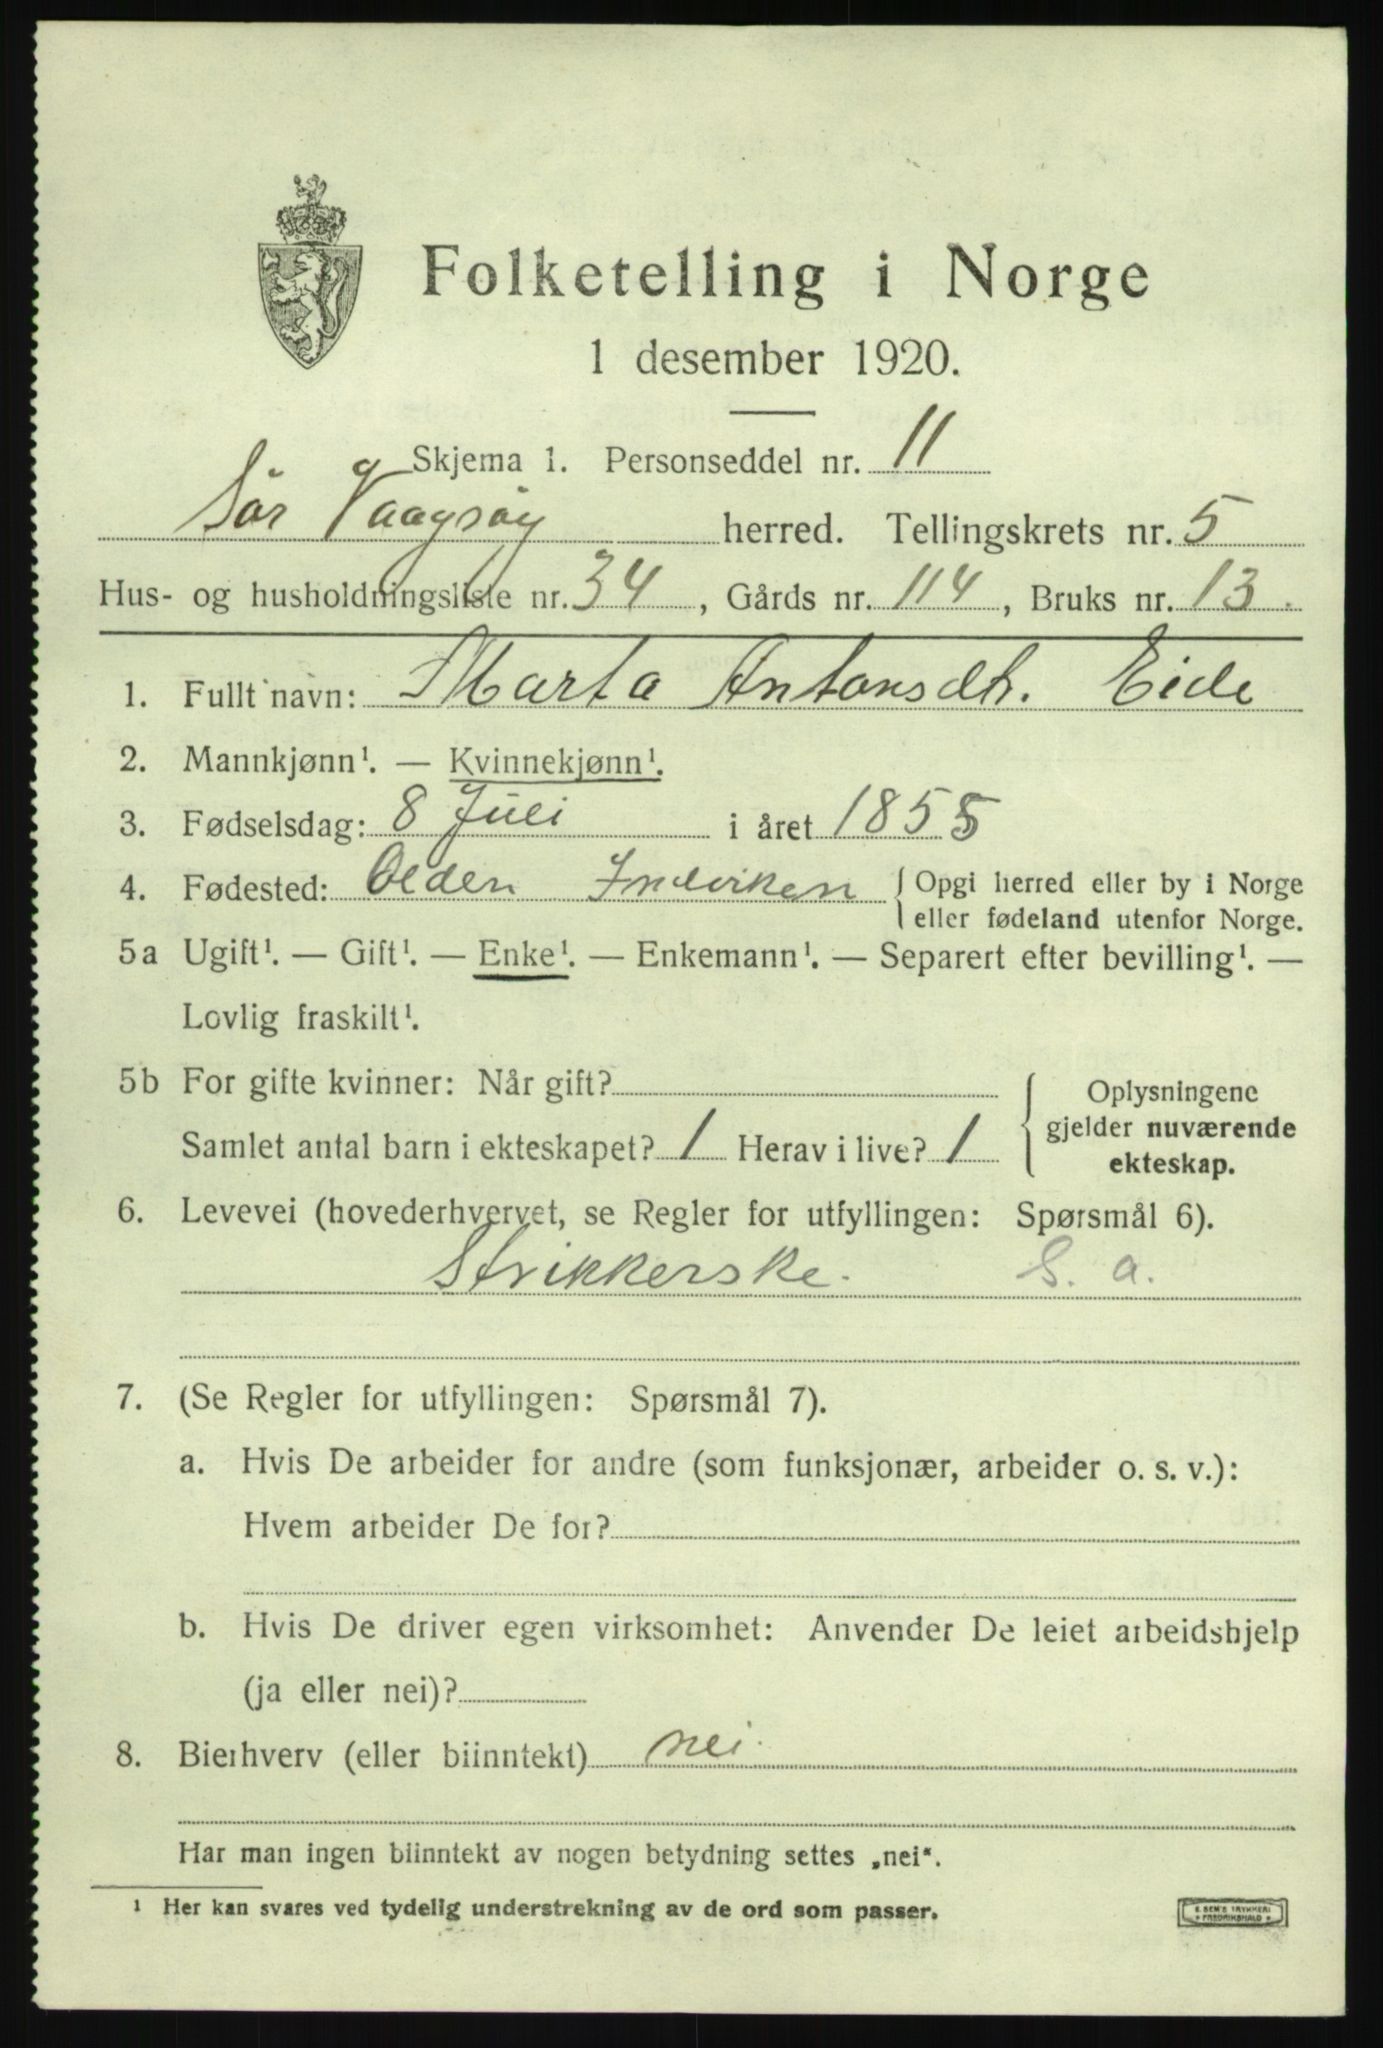 Folketelling i Norge
1 desember 1920.
Skjema 1. Personseddel nr. 11
Sør Vaagsøy herred. Tellingskrets nr. 5
Hus- og husholdningsliste nr. 34, Gårds nr. 114, Bruks nr. 13.
1. Fullt navn: Marta Antonsdtr. Eide
2. Mannkjønn¹. — Kvinnekjønn¹.
3. Fødselsdag: 8 Juli i året 1855
4. Fødested: Olden Indviken { Opgi herred eller by i Norge
eller fødeland utenfor Norge.
5a Ugift¹. — Gift¹. — Enke¹. — Enkemann¹. — Separert efter bevilling¹. —
Lovlig fraskilt¹.
5b For gifte kvinner: Når gift?
Samlet antal barn i ekteskapet? 1 Herav i live? 1
{ Oplysningene
gjelder nuværende
ekteskap.
6. Levevei (hovederhvervet, se Regler for utfyllingen: Spørsmål 6).
Strikkerske. S. a.
7. (Se Regler for utfyllingen: Spørsmål 7).
a. Hvis De arbeider for andre (som funksjonær, arbeider o. s. v.):
Hvem arbeider De for?
b. Hvis De driver egen virksomhet: Anvender De leiet arbeidshjelp
(ja eller nei)?
8. Bierhverv (eller biinntekt) nei.
Har man ingen biinntekt av nogen betydning settes „nei“.
¹ Her kan svares ved tydelig understrekning av de ord som passer.
E. SEM'S TRYKKERI
FREDRIKSHALD